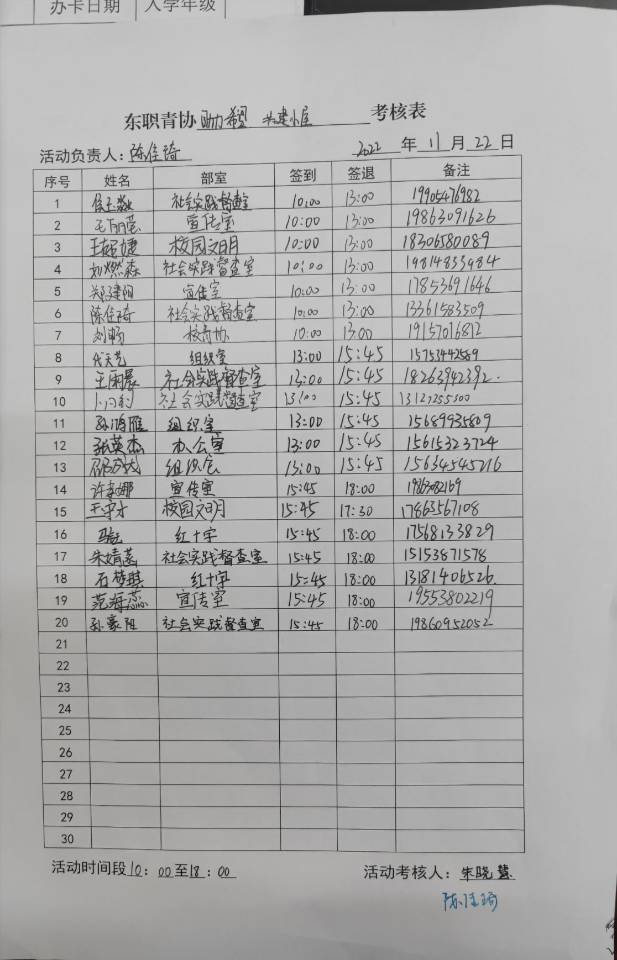 办卡日期 入学年级
东职青协 考核表
活动负责人：陈佳琦 2022 年 11 月 22 日
序号 姓名 部室 签到 签退 备注
1 社会实践督查室 10:00 13:00 19905476982
2 宣传室 10:00 13:00 19863091626
3 校园文明 10:00 13:00 18306580089
4 刘燃森 社会实践督查室 10:00 13:00 19814833984
5 郑建阳 宣传室 10:00 13:00 17853691646
6 陈佳琦 社会实践督查室 10:00 13:00 13361583509
7 刘畅 10:00 13:00 19157016812
8 代天艺 组织室 13:00 15:45 15753442589
9 社会实践督查室 13:00 15:45 18263942392.
10 社会实践督查室 13:00 15:45 13127255500
11 孙鸿雁 组织室 13:00 15:45 15689935809
12 张英杰 办公室 13:00 15:45 15615323724
13 13:00 15:45 15634545216
14 宣传室 15:45 18:00
15 校园文明 15:45 17:30 17863567108
16 红十字 15:45 18:00 17568133829
17 朱婧菡 社会实践督查室 15:45 18:00 15153871578
18 石梦琪 红十字 15:45 18:00 13181406526
19 范海蕊 宣传室 15:45 18:00 19553802219
20 孙豪阳 社会实践督查室 15:45 18:00 19860952052
21
22
23
24
25
26
27
28
29
30
活动时间段10：00至18：00 活动考核人：朱晓慧
陈佳琦